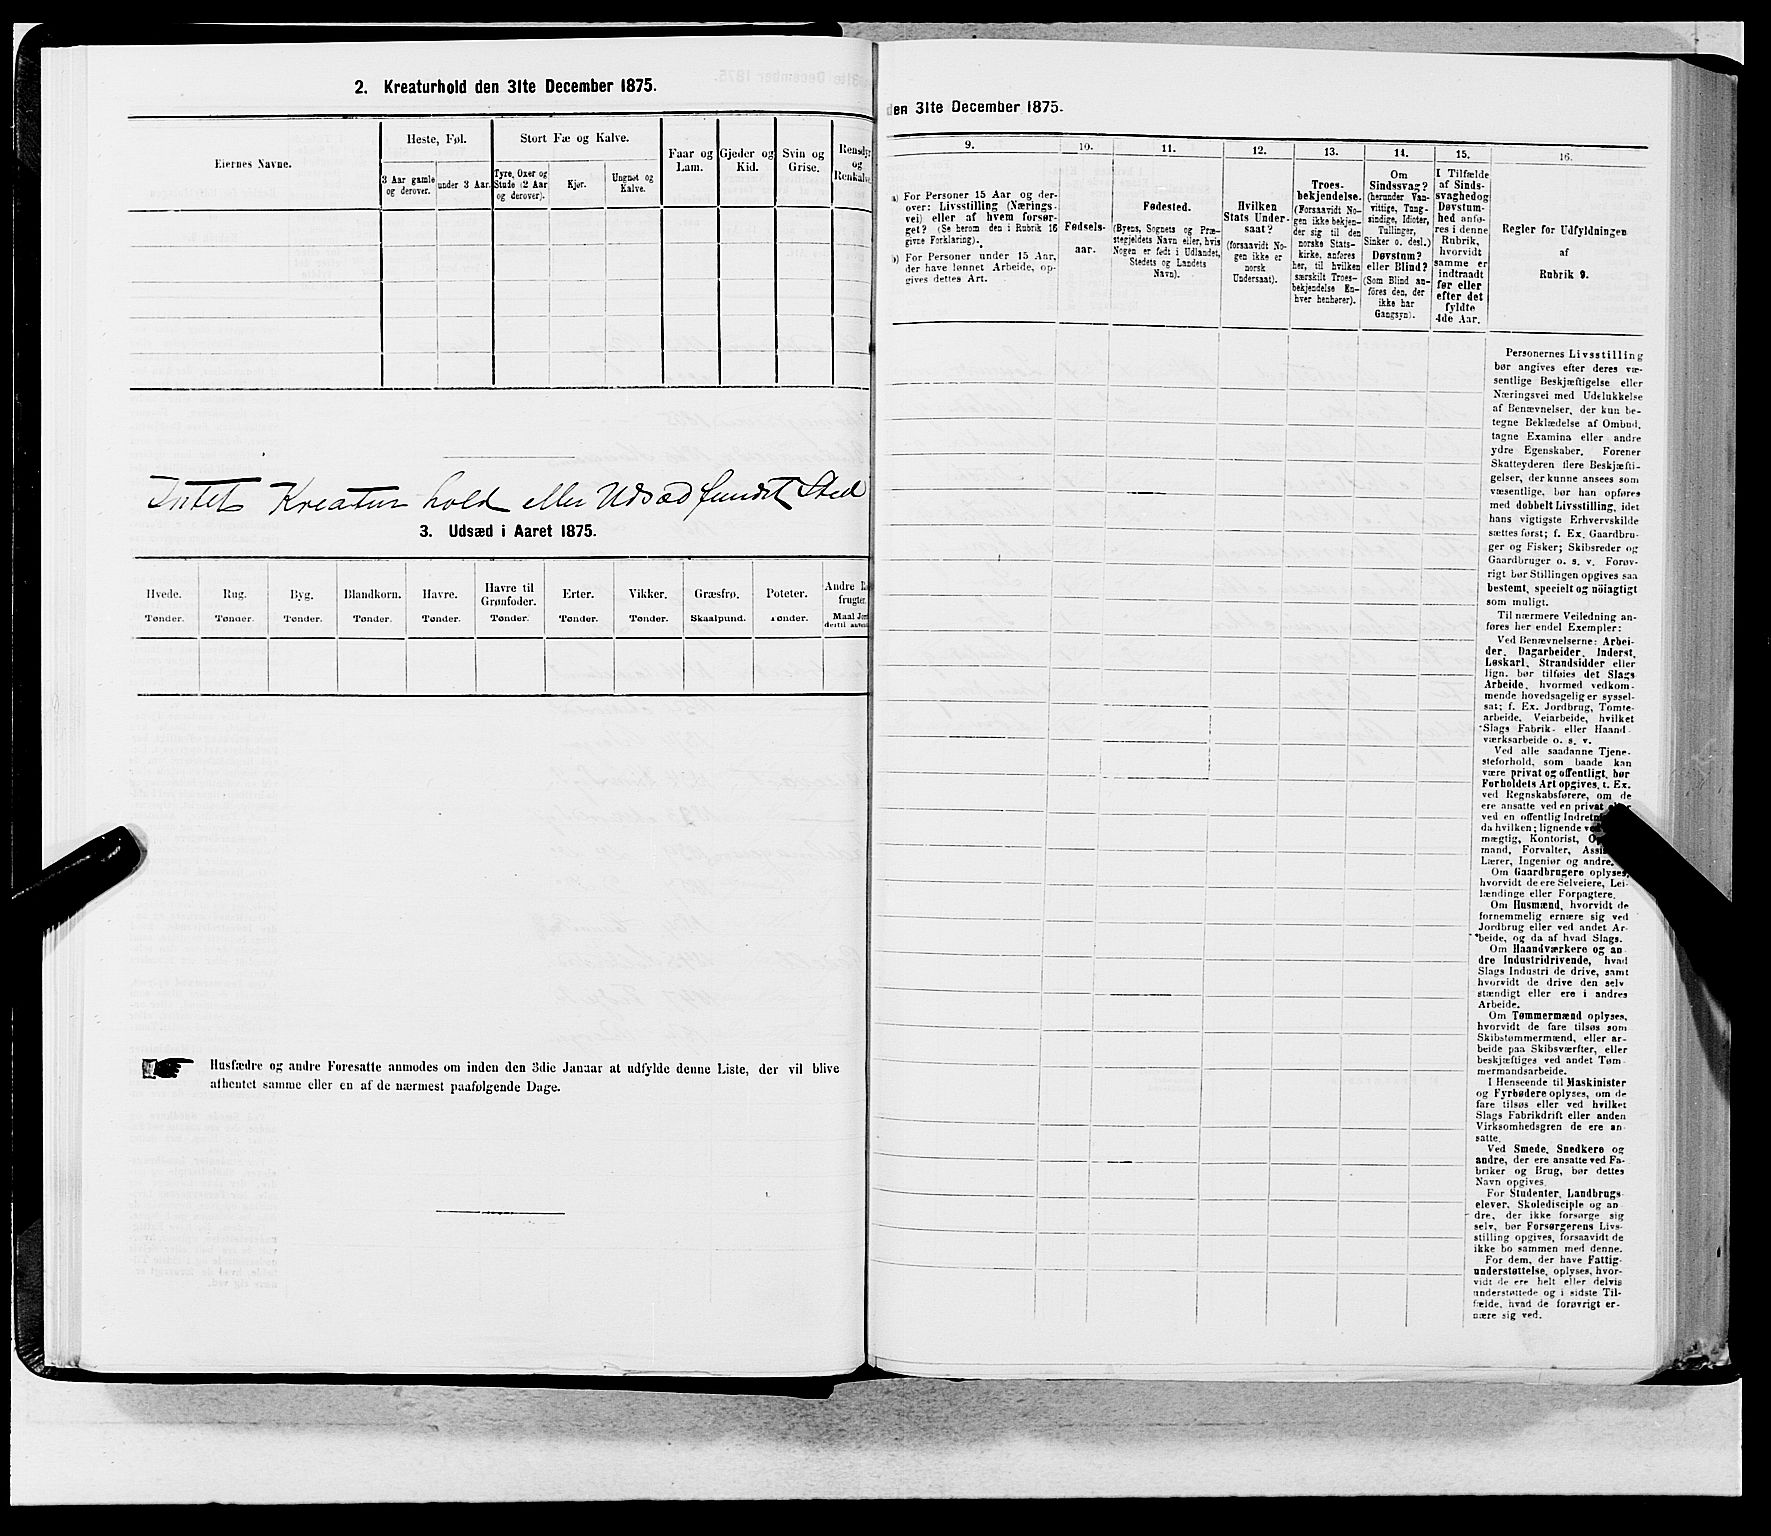 2. Kreaturhold den 31te December 1875.
Eiernes Navne.
Heste, Føl.
3 Aar gamle
og derover.
under 3 Aar.
Stort Fæ og Kalve.
Tyre, Oxer og
Stude (2 Aar
og derover).
Kjør.
Ungnøt og
Kalve.
Faar og
Lam.
Gjeder og
Kid.
Svin og
Grise.
Rensdyr
og
Renkalve
Intet Kreaturhold eller Udsæd fundet Sted
3. Udsæd i Aaret 1875.
Hvede.
Tønder.
Rug.
Tønder.
Byg.
Tønder.
Blandkorn.
Tønder.
Havre.
Tønder.
Havre til
Grønfoder.
Tønder.
Erter.
Tønder.
Vikker.
Tønder.
Græsfrø.
Skaalpund.
Poteter.
Tønder.
Andre
frugter.
Maal
dertil
Husfædre og andre Foresatte anmodes om inden den 3die Januar at udfylde denne Liste, der vil blive
afhentet samme eller en af de nærmest paafølgende Dage.
den 31te December 1875.
9.
a) For Personer 15 Aar og der-
over: Livsstilling (Nærings-
vei) eller af hvem forsør-
get? (Se herom den i Rubrik 16
givne Forklaring).
b) For Personer under 15 Aar,
der have lønnet Arbeide, op-
gives dettes Art.
10.
Fødsels-
aar.
11.
Fødested.
(Byens, Sognets og Præ-
stegjeldets Navn eller, hvis
Nogen er født i Udlandet,
Stedets og Landets
Navn).
12.
Hvilken
Stats Under-
saat?
(forsaavidt No-
gen ikke er
norsk
Undersaat).
13.
Troes-
bekjendelse.
(Forsaavidt No-
gen ikke bekjen-
der sig til den
norske Stats-
kirke, anføres
her, til hvilken
særskilt Troes-
bekjendelse En-
hver henhører).
14.
Om
Sindssvag?
(herunder Van-
vittige, Tung-
sindige, Idioter,
Tullinger,
Sinker o. desl.)
Døvstum?
eller Blind?
(Som Blind an-
føres den, der
ikke har
Gangsyn).
15.
I Tilfælde
af Sinds-
svaghed og
Døvstum-
hed anfø-
res i denne
Rubrik,
hvorvidt
samme er
indtraadt
før eller
efter det
fyldte
4de Aar.
16.
Regler for Udfyldningen
af
Rubrik 9.
Personernes Livsstilling
bør angives efter deres væ-
sentlige Beskjæftigelse eller
Næringsvei med Udelukkelse
af Benævnelser, der kun be-
tegne Beklædelse af Ombud,
tagne Examina eller andre
ydre Egenskaber. Forener
Skatteyderen flere Beskjæfti-
gelser, der kunne ansees som
væsentlige, bør han opføres
med dobbelt Livsstilling, idet
hans vigtigste Erhvervskilde
sættes først; f. Ex. Gaardbru-
ger og Fisker; Skibsreder og
Gaardbruger o. s. v. Forøv-
rigt bør Stillingen opgives saa
bestemt, specielt og nöiagtigt
som muligt.
Til nærmere Veiledning an-
føres her endel Exempler:
Ved Benævnelserne: Arbei-
der, Dagarbeider, Inderst,
Løskarl, Strandsidder eller
lign. bør tilføies det Slags
Arbeide, hvormed vedkom-
mende hovedsagelig er syssel-
sat; f. Ex. Jordbrug, Tomte-
arbeide, Veiarbeide, hvilket
Slags Fabrik- eller Haand-
værksarbeide o. s. v.
Ved alle saadanne Tjene-
steforhold, som baade kan
være privat og offentligt, bør
Forholdets Art opgives, t. Ex.
ved Regnskabsførere, om de
ere ansatte ved en privat eller
ved en offentlig
da hvilken; lignende
mægtig, Kontorist,
mand, Forvalter,
Lærer, Ingeniør og andre.
Om Gaardbrugere oplyses,
hvorvidt de ere Selveiere, Lei-
lændinge eller Forpagtere.
Om Husmænd, hvorvidt de
fornemmelig ernære sig ved
Jordbrug eller ved andet Ar-
beide, og da af hvad Slags.
Om Haandværkere og an
dre Industridrivende, hvad
Slags Industri de drive, samt
hvorvidt de drive den selv
stændigt eller ere i andres
Arbeide.
Om Tømmermænd oplyses,
hvorvidt de fare tilsøs som
Skibstømmermænd, eller ar-
beide paa Skibsværfter, eller
beskjæftiges ved andet Tøm-
mermandsarbeide.
I Henseende til Maskinister
og Fyrbødere oplyses, om de
fare tilsøs eller ved hvilket
Slags Fabrikdrift eller anden
Virksomhedsgren de ere an-
satte.
Ved Smede, Snedkere og
andre, der ere ansatte ved Fa-
briker og Brug, bør dettes
Navn opgives.
For Studenter, Landbrugs-
elever, Skoledisciple og an
dre, der ikke forsørge sig
selv, bør Forsørgerens Livs-
stilling opgives, forsaavidt de
ikke bo sammen med denne.
For dem, der have Fattig-
understøttelse, oplyses, hvor-
vidt de ere helt eller delvis
understøttede og i sidste Til-
fælde, hvad de forøvrigt er-
nære sig ved.